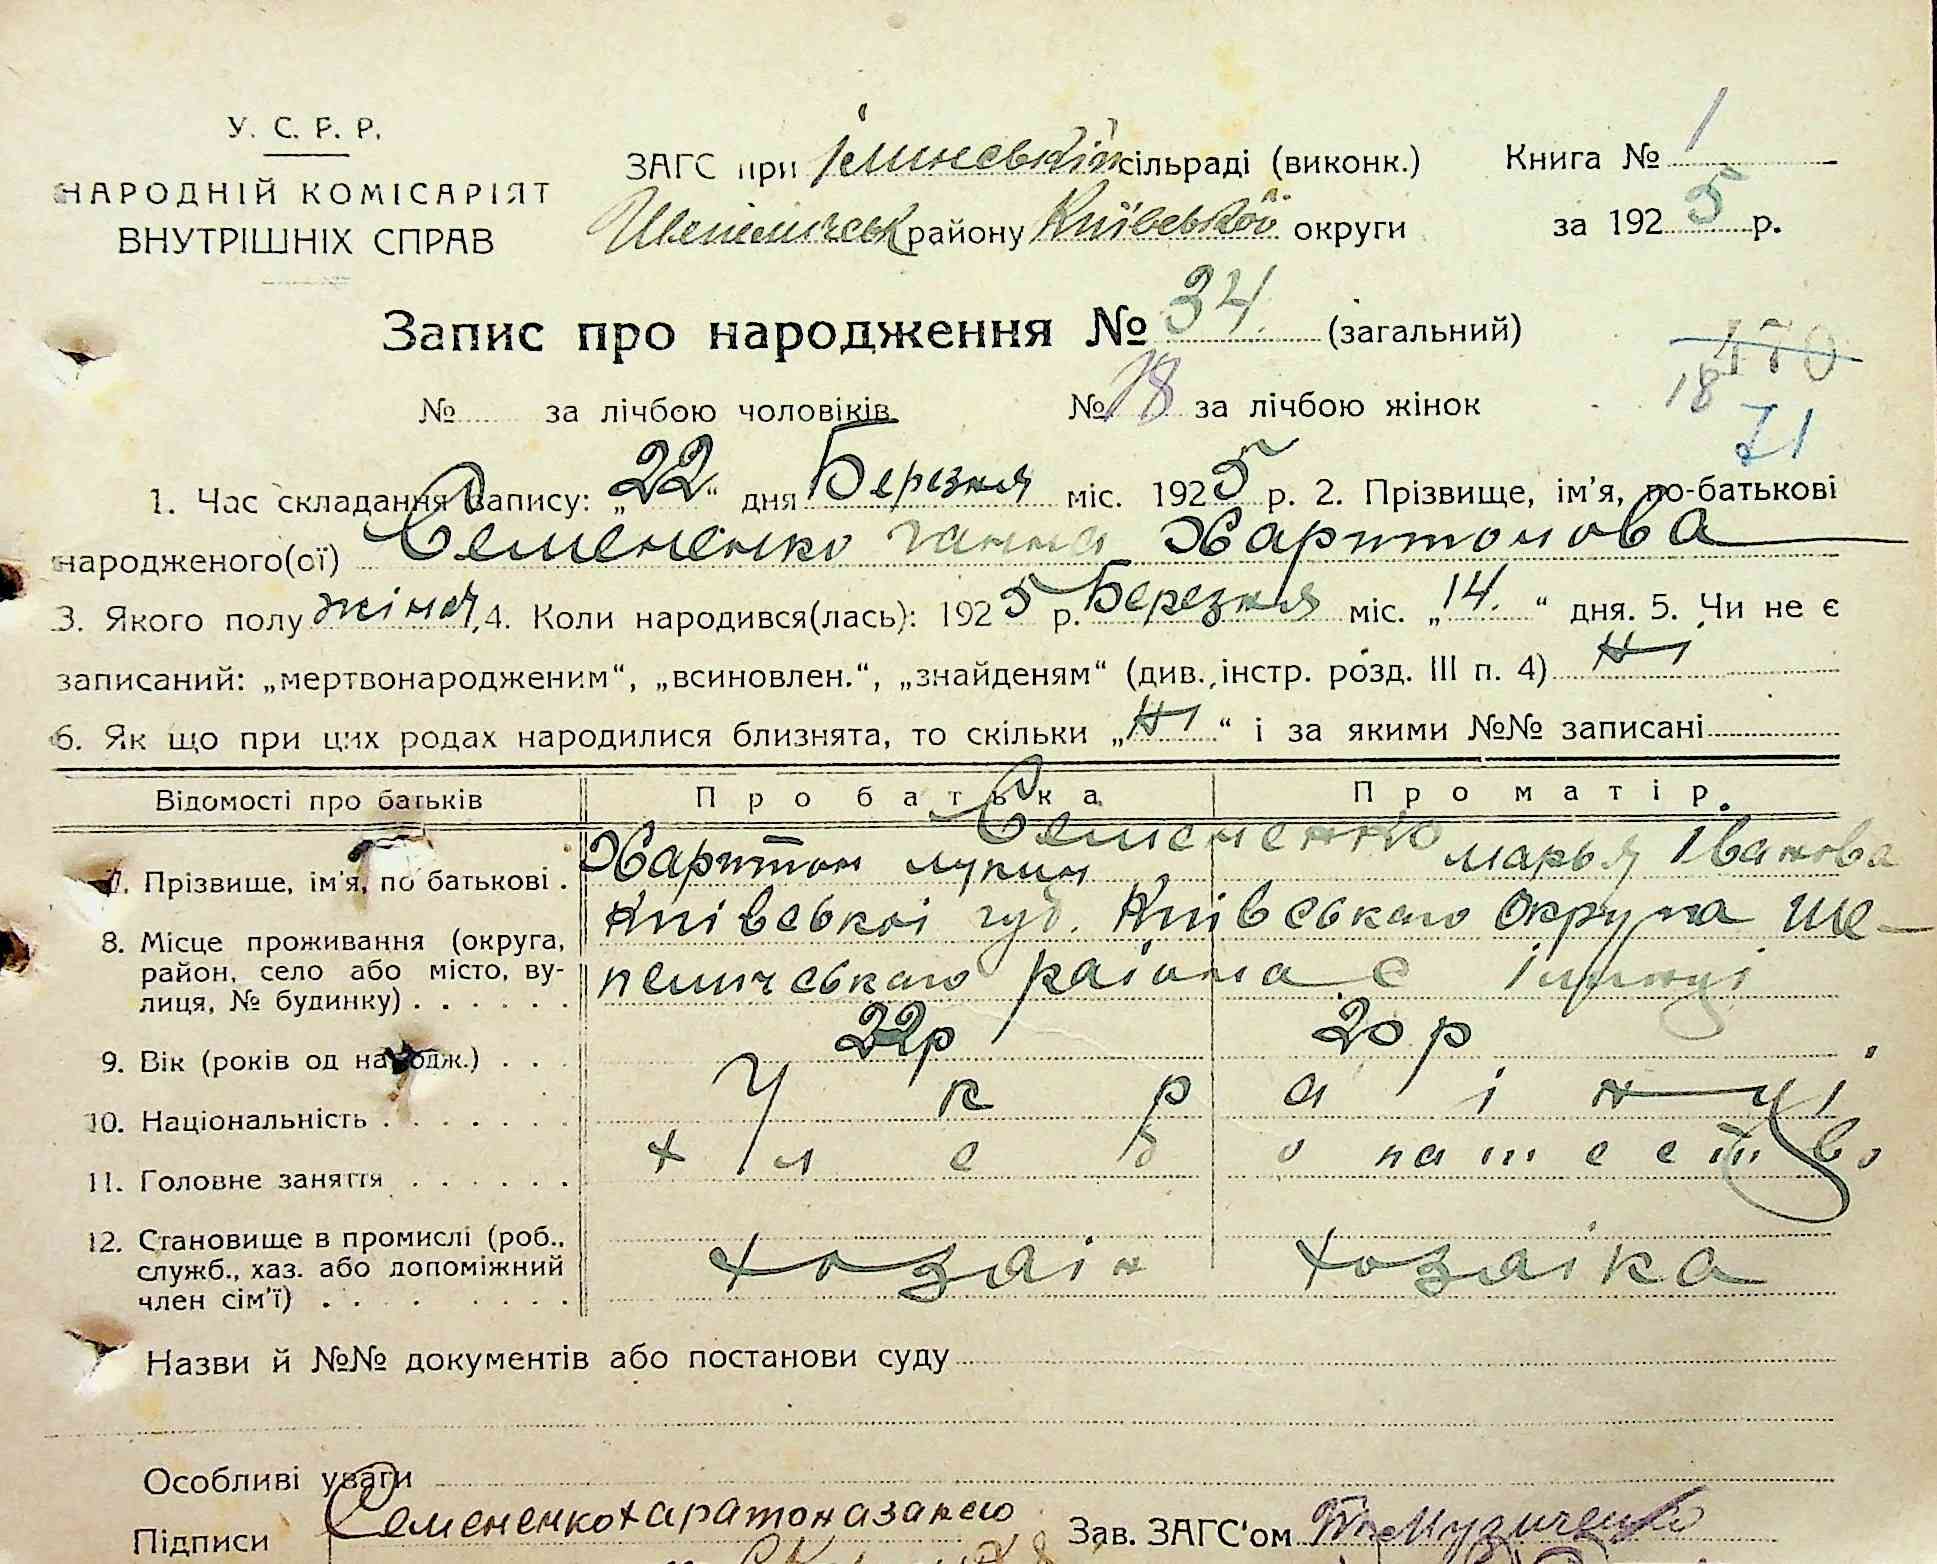 У. С. Р. Р.
НАРОДНІЙ КОМІСАРІЯТ
ВНУТРІШНІХ СПРАВ
ЗАГС при сільраді (виконк.)
Шепелическ району Київської округи
Книга № 1
за 1925 р.
Запис про народження № 34. (загальний)
№ за лічбою чоловіків № 18 за лічбою жінок
470
18
71
1. Час складання запису: „22“ дня Березня міс. 1925 р. 2. Прізвище, ім'я, по-батькові
народженого(ої) Семененко ганна Харитонова
3. Якого полу жіноч, 4. Коли народився(лась): 1925 р. Березня міс. „14.“ дня. 5. Чи не є
записаний: „мертвонародженим“, „всиновлен.“, „знайденям“ (див. інстр. розд. III п. 4) Ні
6. Як що при цих родах народилися близнята, то скільки „Ні“ і за якими №№ записані
Відомості про батьків Про батька Про матір.
Семененко
7. Прізвище, ім'я, по батькові . Харитон лукин марья Іванова
8. Місце проживання (округа, район, село або місто, вулиця, № будинку) . . . . . . Київської губ. Київського Округа Ше-
пеличського района с
9. Вік (років од народж.) . . . 22р 20 р
10. Національність . . . . . . . Українці
11. Головне заняття . . . . . . хлебопашество
12. Становище в промислі (роб.,
служб., хаз. або допоміжний
член сім'ї) . . . . . . . . хозаін хозаіка
Назви й №№ документів або постанови суду
Особливі уваги
Підписи Семененко Зав. ЗАГС'ом Музиченко